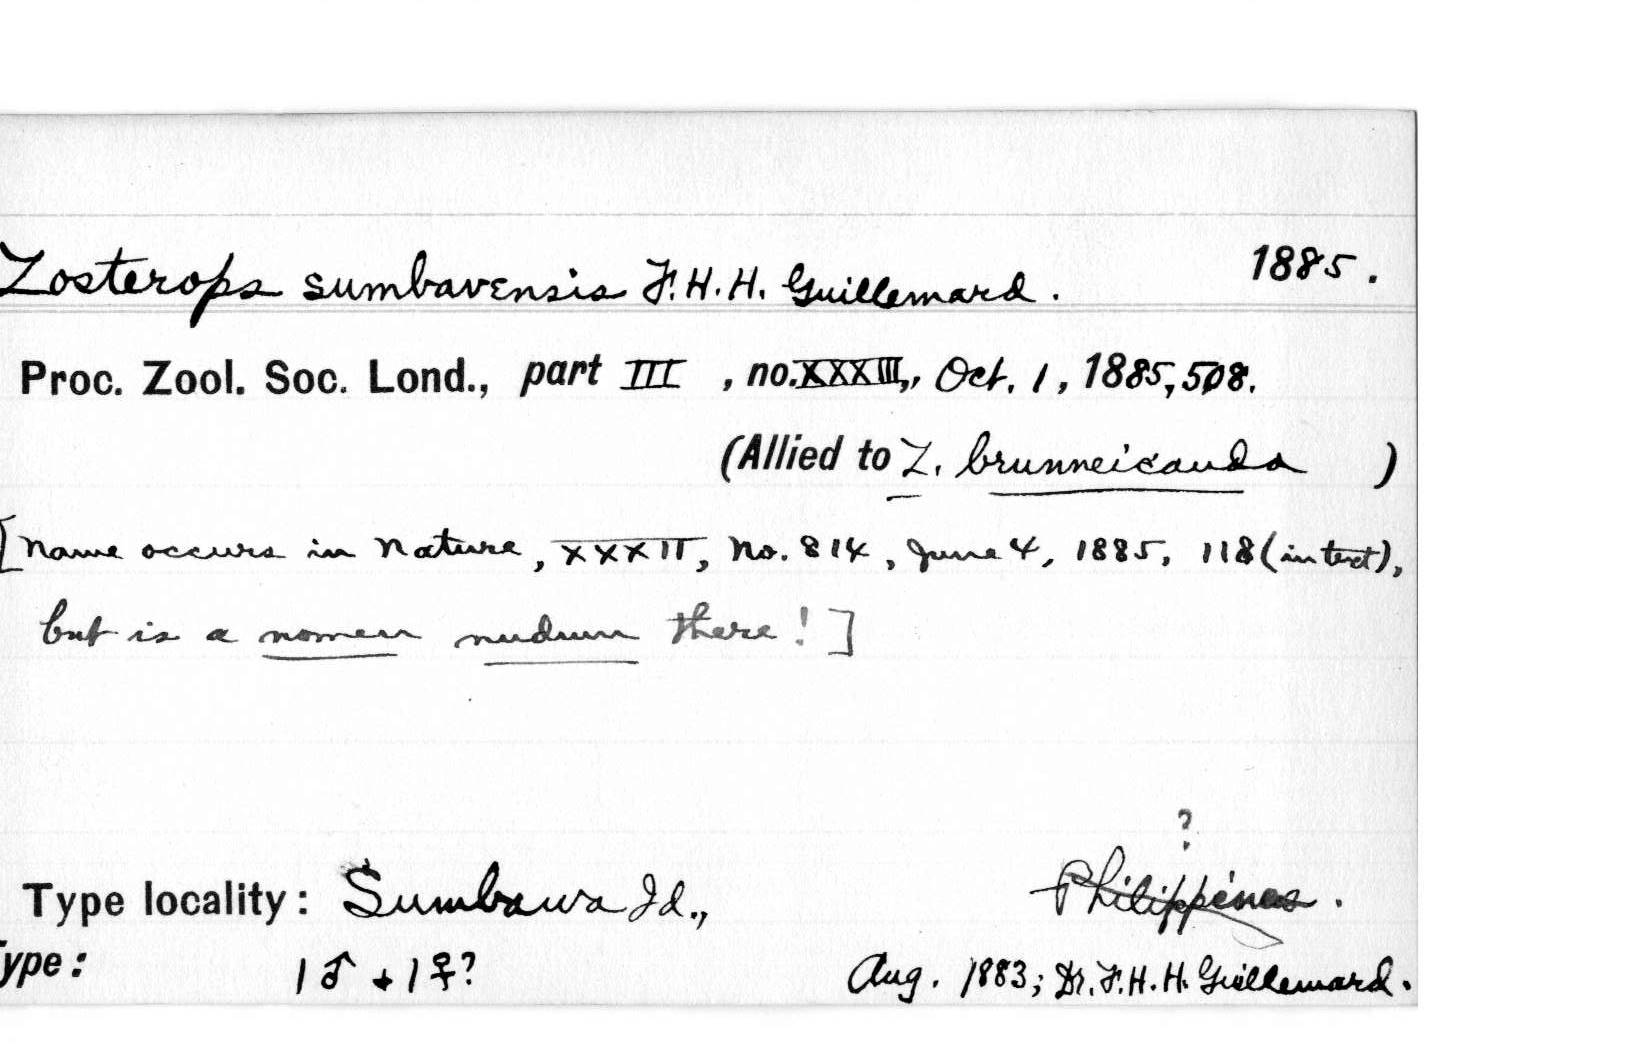 Zosterops sumbavensis F.H.H. Guillemard. 1885.
Proc. Zool. Soc. Lond., part III, no. XXXIII,, Oct. 1, 1885, 508.
(Allied to Z. brunneicauda )
[Name occurs in Nature, XXXII, No. 814, June 4, 1885, 118 (in text),
but is a nomen nudum there! ]
?
Type locality: Sumbawa Id., Philippines.
ype: 1♂ + 1♀? Aug. 1883; Dr. F.H.H. Guillemard.